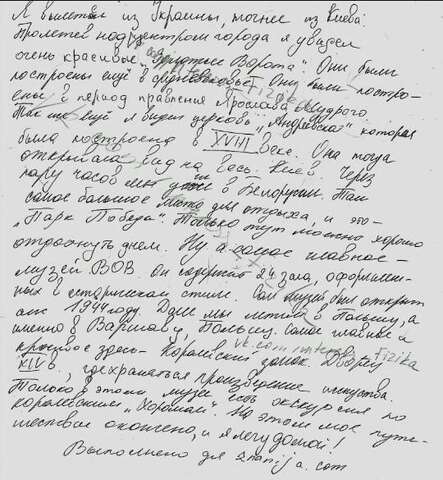 Я вылетел из Украины, точнее из Киева.
Пролетев над центром города я увидел
очень красивые "Золотые Ворота". Они были
построены ещё в средневековье. Они были постро-
ены в период правления Ярослава Мудрого.
Так же ещё я видел церковь "Андреевска" которая
была построена в XVIII веке. Она
открывала вид на весь Киев. Через
пару часов мы уже в Белорусии. Там
самое большое место для отдыха, и это-
"Парк Победа". Только тут можно хорошо
отдохнуть днем. Ну а самое главное-
музей ВОВ. Он содержит 24 зала, оформлен-
ных в историческом стиле. Сам музей был открыт
аж 1944 году. Далее мы летим в Польшу, а
именно в Варшаву, Польшу. Самое главное и
красивое здесь- Королевский замок. Дворец
XIV в. где храняться произведение искуства.
Только в этом музее есть экскурсия по
королевским "Хоромам". На этом мое путе-
шествие окончено, и я лечу домой!
Выполнено для znanija.com
vk.com
fizika